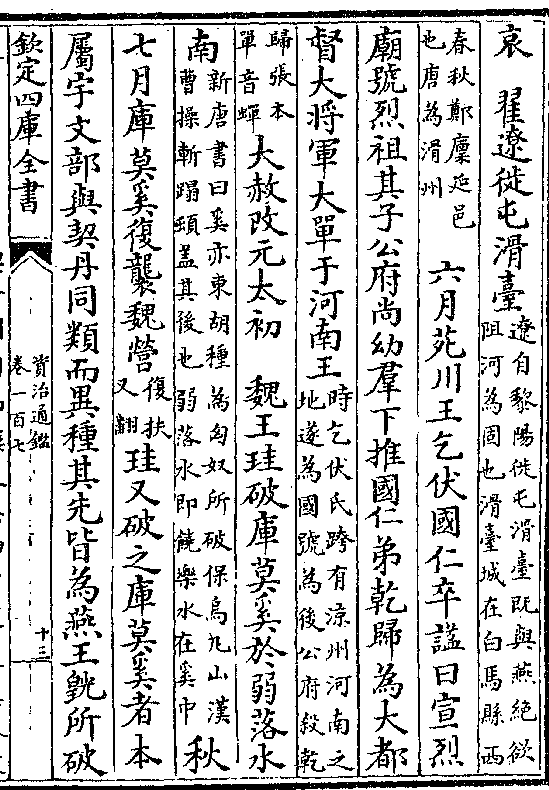 哀　翟遼徙屯滑臺遼自黎陽徙屯滑臺既與燕絶欲阻河為固也滑臺城在白馬縣西
春秋鄭廩延邑也唐為滑州　六月苑川王乞伏國仁卒諡曰宣烈
廟號烈祖其子公府尚幼羣下推國仁弟乾歸為大都
督大將軍大單于河南王時乞伏氏跨有涼州河南之地遂為國號為後公府殺乾
歸張本單音蟬　大赦改元太初　魏王珪破庫莫奚於弱落水
南新唐書曰奚亦東胡種為匈奴所破保烏丸山漢曹操斬蹋頓蓋其後也弱落水即饒樂水在奚中　秋
七月庫莫奚復襲魏營復扶又翻珪又破之庫莫奚者本
屬宇文部與契丹同類而異種其先皆為燕王皝所破
欽定四庫全書
資治通鑑
卷一百七
十三